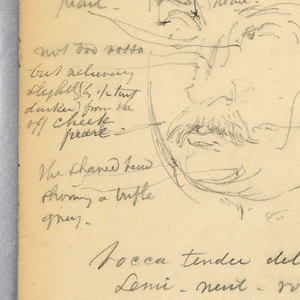 pearl -
not too rosso
but relieving
slightly (a tint
darker) from the
off cheek
pearl -
The shaved head
showing a trifle
grey -
bocca tender del
Semi - neut - ro